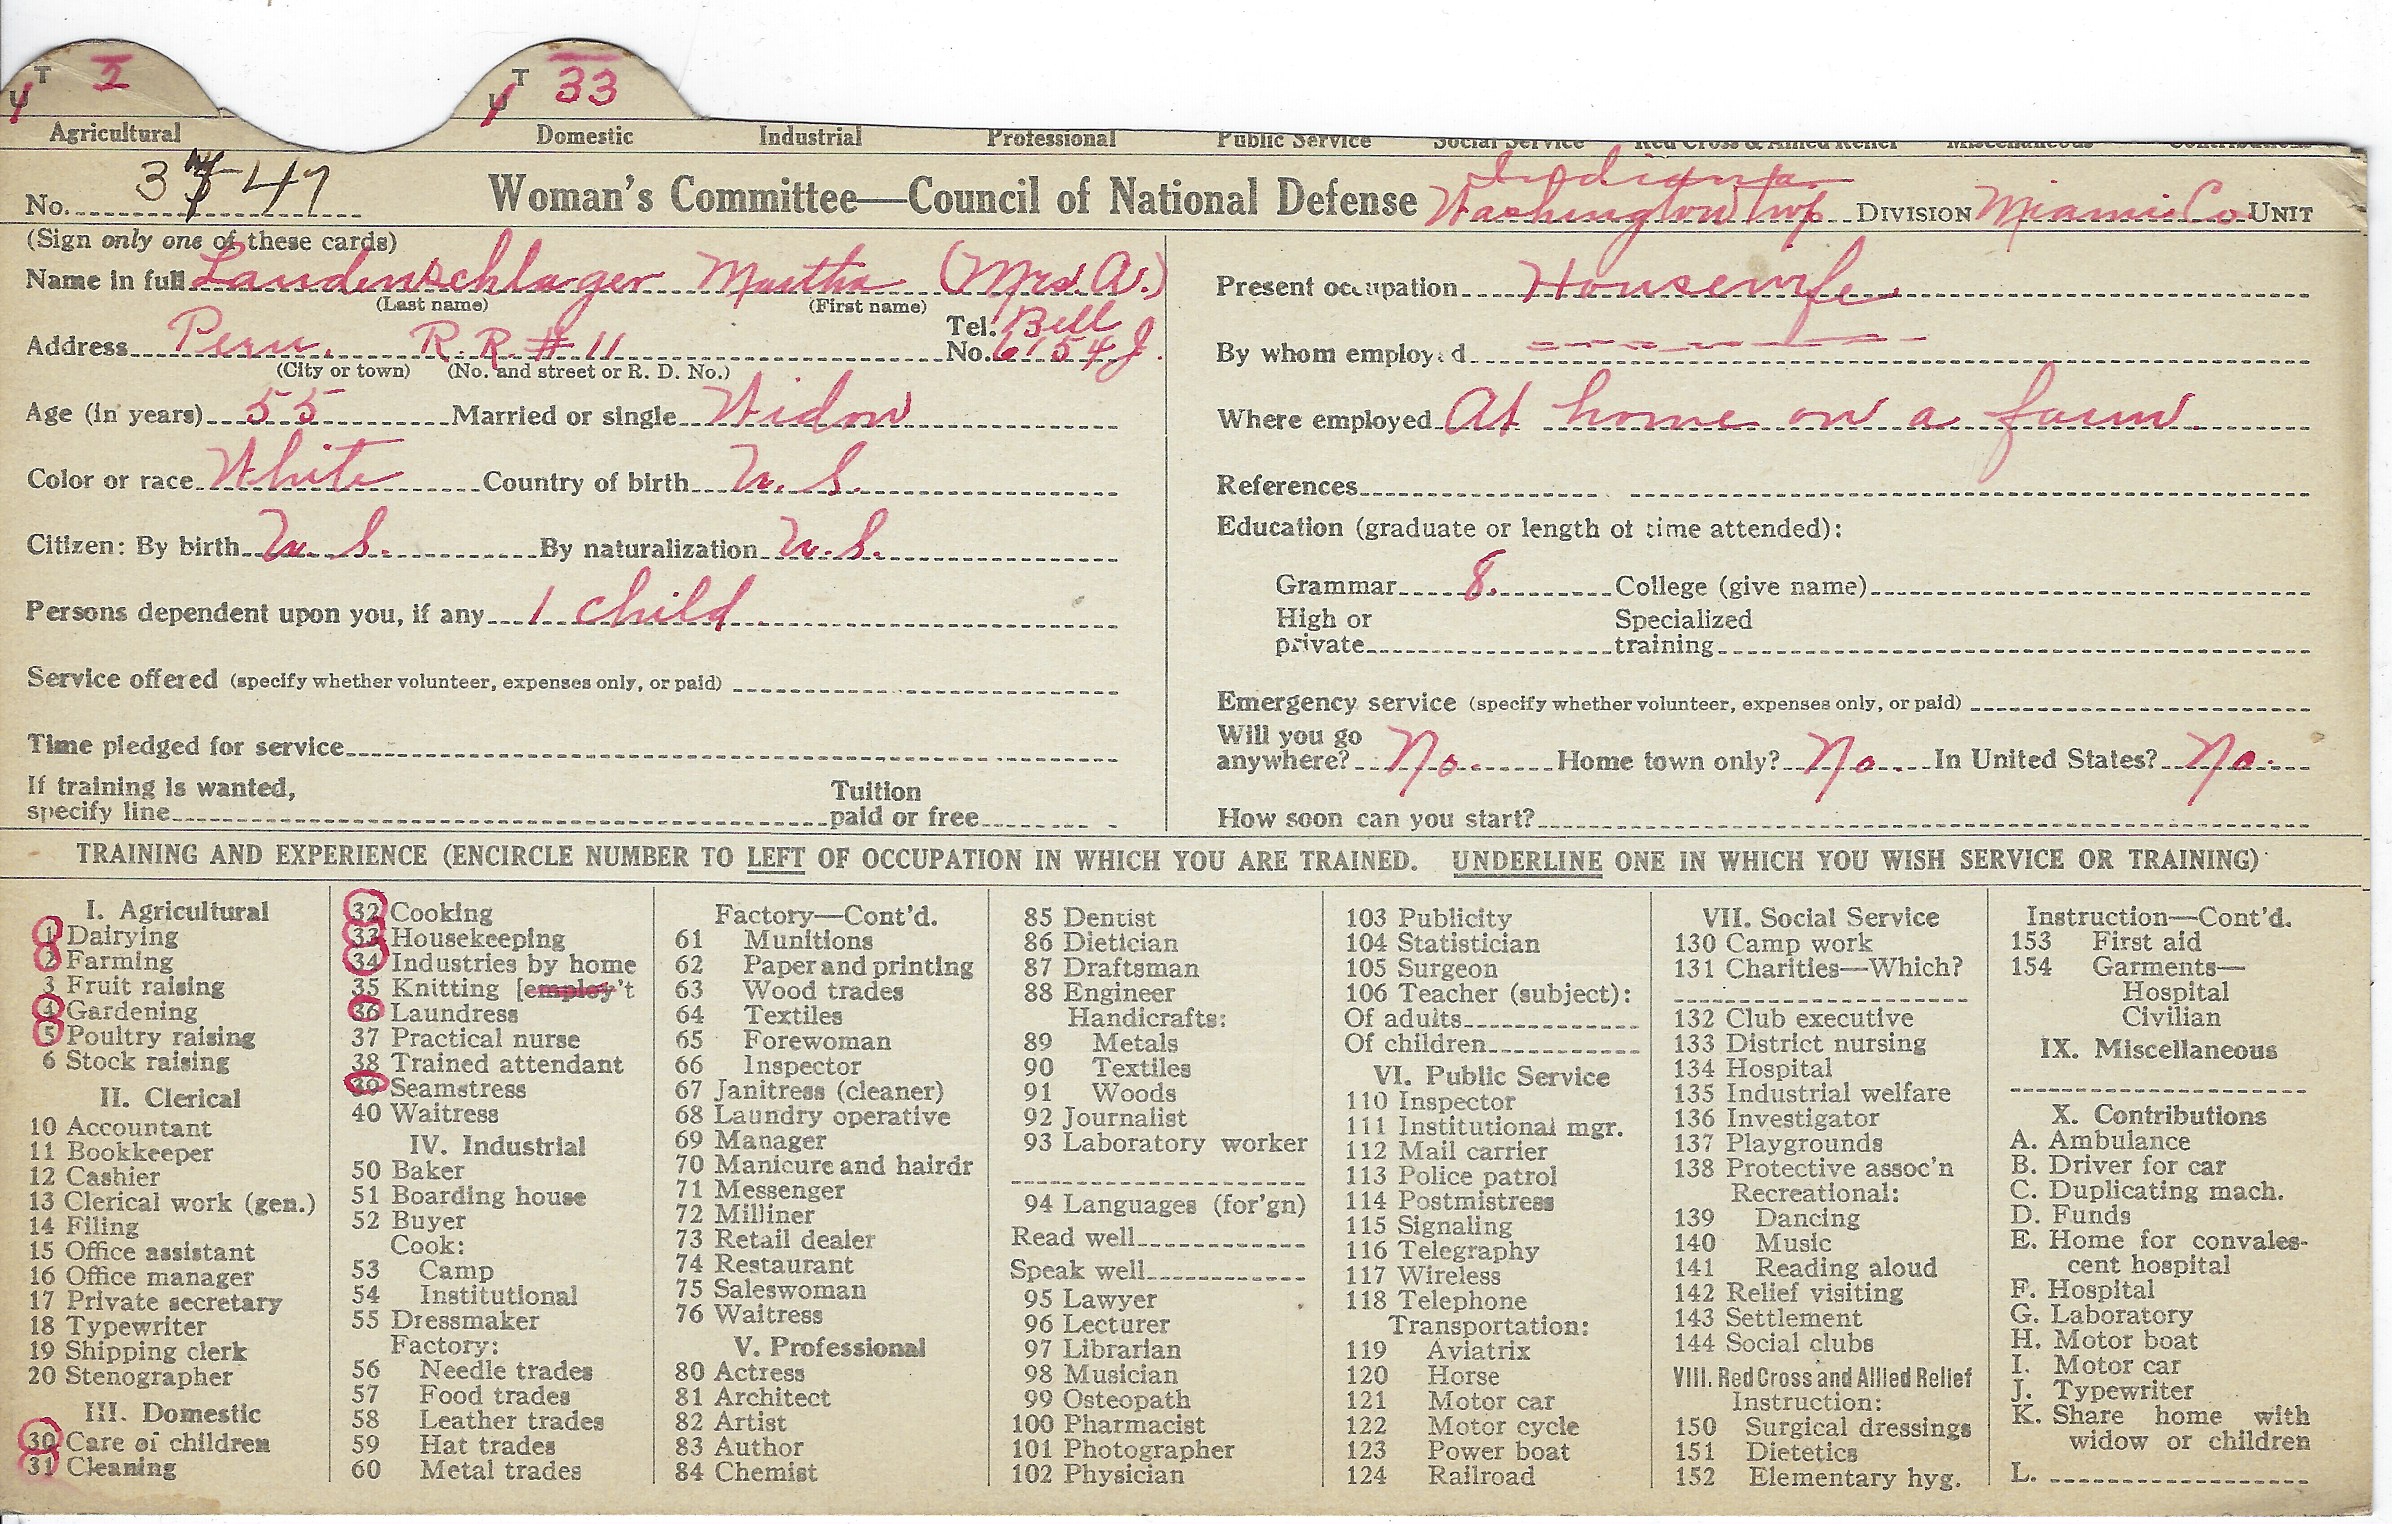 T 2
U
T 33
U
Agricultural Domestic Industrial Professional Public Service Social Service Red Cross & Allied Relief Miscellaneous Contributions
No. 3547
Woman's Committee—Council of National Defense Indiana Washington Twp DIVISION Miami Co. UNIT
(Sign only one of these cards)
Name in full Laudenschlager Martha (Mrs. A.)
(Last name) (First name)
Address Peru, R.R. # 11 Tel. No. Bell 6154 J.
(City or town) (No. and street or R. D. No.)
Age (in years) 55 Married or single Widow
Color or race White Country of birth U. S.
Citizen: By birth U. S. By naturalization U. S.
Persons dependent upon you, if any 1 child
Service offered (specify whether volunteer, expenses only, or paid)
Time pledged for service
If training is wanted,
specify line Tuition paid or free
Present occupation Housewife
By whom employed
Where employed At home on a farm.
References
Education (graduate or length of time attended):
Grammar 8. College (give name)
High or private Specialized training
Emergency service (specify whether volunteer, expenses only, or paid)
Will you go anywhere? No. Home town only? No. In United States? No.
How soon can you start?
TRAINING AND EXPERIENCE (ENCIRCLE NUMBER TO LEFT OF OCCUPATION IN WHICH YOU ARE TRAINED. UNDERLINE ONE IN WHICH YOU WISH SERVICE OR TRAINING)
I. Agricultural
1 Dairying
2 Farming
3 Fruit raising
4 Gardening
5 Poultry raising
6 Stock raising
II. Clerical
10 Accountant
11 Bookkeeper
12 Cashier
13 Clerical work (gen.)
14 Filing
15 Office assistant
16 Office manager
17 Private secretary
18 Typewriter
19 Shipping clerk
20 Stenographer
III. Domestic
30 Care of children
31 Cleaning
32 Cooking
33 Housekeeping
34 Industries by home
35 Knitting [employ't
36 Laundress
37 Practical nurse
38 Trained attendant
39 Seamstress
40 Waitress
IV. Industrial
50 Baker
51 Boarding house
52 Buyer
Cook:
53 Camp
54 Institutional
55 Dressmaker
Factory:
56 Needle trades
57 Food trades
58 Leather trades
59 Hat trades
60 Metal trades
Factory—Cont'd.
61 Munitions
62 Paper and printing
63 Wood trades
64 Textiles
65 Forewoman
66 Inspector
67 Janitress (cleaner)
68 Laundry operative
69 Manager
70 Manicure and hairdr
71 Messenger
72 Milliner
73 Retail dealer
74 Restaurant
75 Saleswoman
76 Waitress
V. Professional
80 Actress
81 Architect
82 Artist
83 Author
84 Chemist
85 Dentist
86 Dietician
87 Draftsman
88 Engineer
Handicrafts:
89 Metals
90 Textiles
91 Woods
92 Journalist
93 Laboratory worker
94 Languages (for'gn)
Read well
Speak well
95 Lawyer
96 Lecturer
97 Librarian
98 Musician
99 Osteopath
100 Pharmacist
101 Photographer
102 Physician
103 Publicity
104 Statistician
105 Surgeon
106 Teacher (subject):
Of adults
Of children
VI. Public Service
110 Inspector
111 Institutional mgr.
112 Mail carrier
113 Police patrol
114 Postmistress
115 Signaling
116 Telegraphy
117 Wireless
118 Telephone
Transportation:
119 Aviatrix
120 Horse
121 Motor car
122 Motor cycle
123 Power boat
124 Railroad
VII. Social Service
130 Camp work
131 Charities—Which?
132 Club executive
133 District nursing
134 Hospital
135 Industrial welfare
136 Investigator
137 Playgrounds
138 Protective assoc'n
Recreational:
139 Dancing
140 Music
141 Reading aloud
142 Relief visiting
143 Settlement
144 Social clubs
VIII. Red Cross and Allied Relief
Instruction:
150 Surgical dressings
151 Dietetics
152 Elementary hyg.
Instruction—Cont'd.
153 First aid
154 Garments—
Hospital
Civilian
IX. Miscellaneous
X. Contributions
A. Ambulance
B. Driver for car
C. Duplicating mach.
D. Funds
E. Home for convales-
cent hospital
F. Hospital
G. Laboratory
H. Motor boat
I. Motor car
J. Typewriter
K. Share home with
widow or children
L.